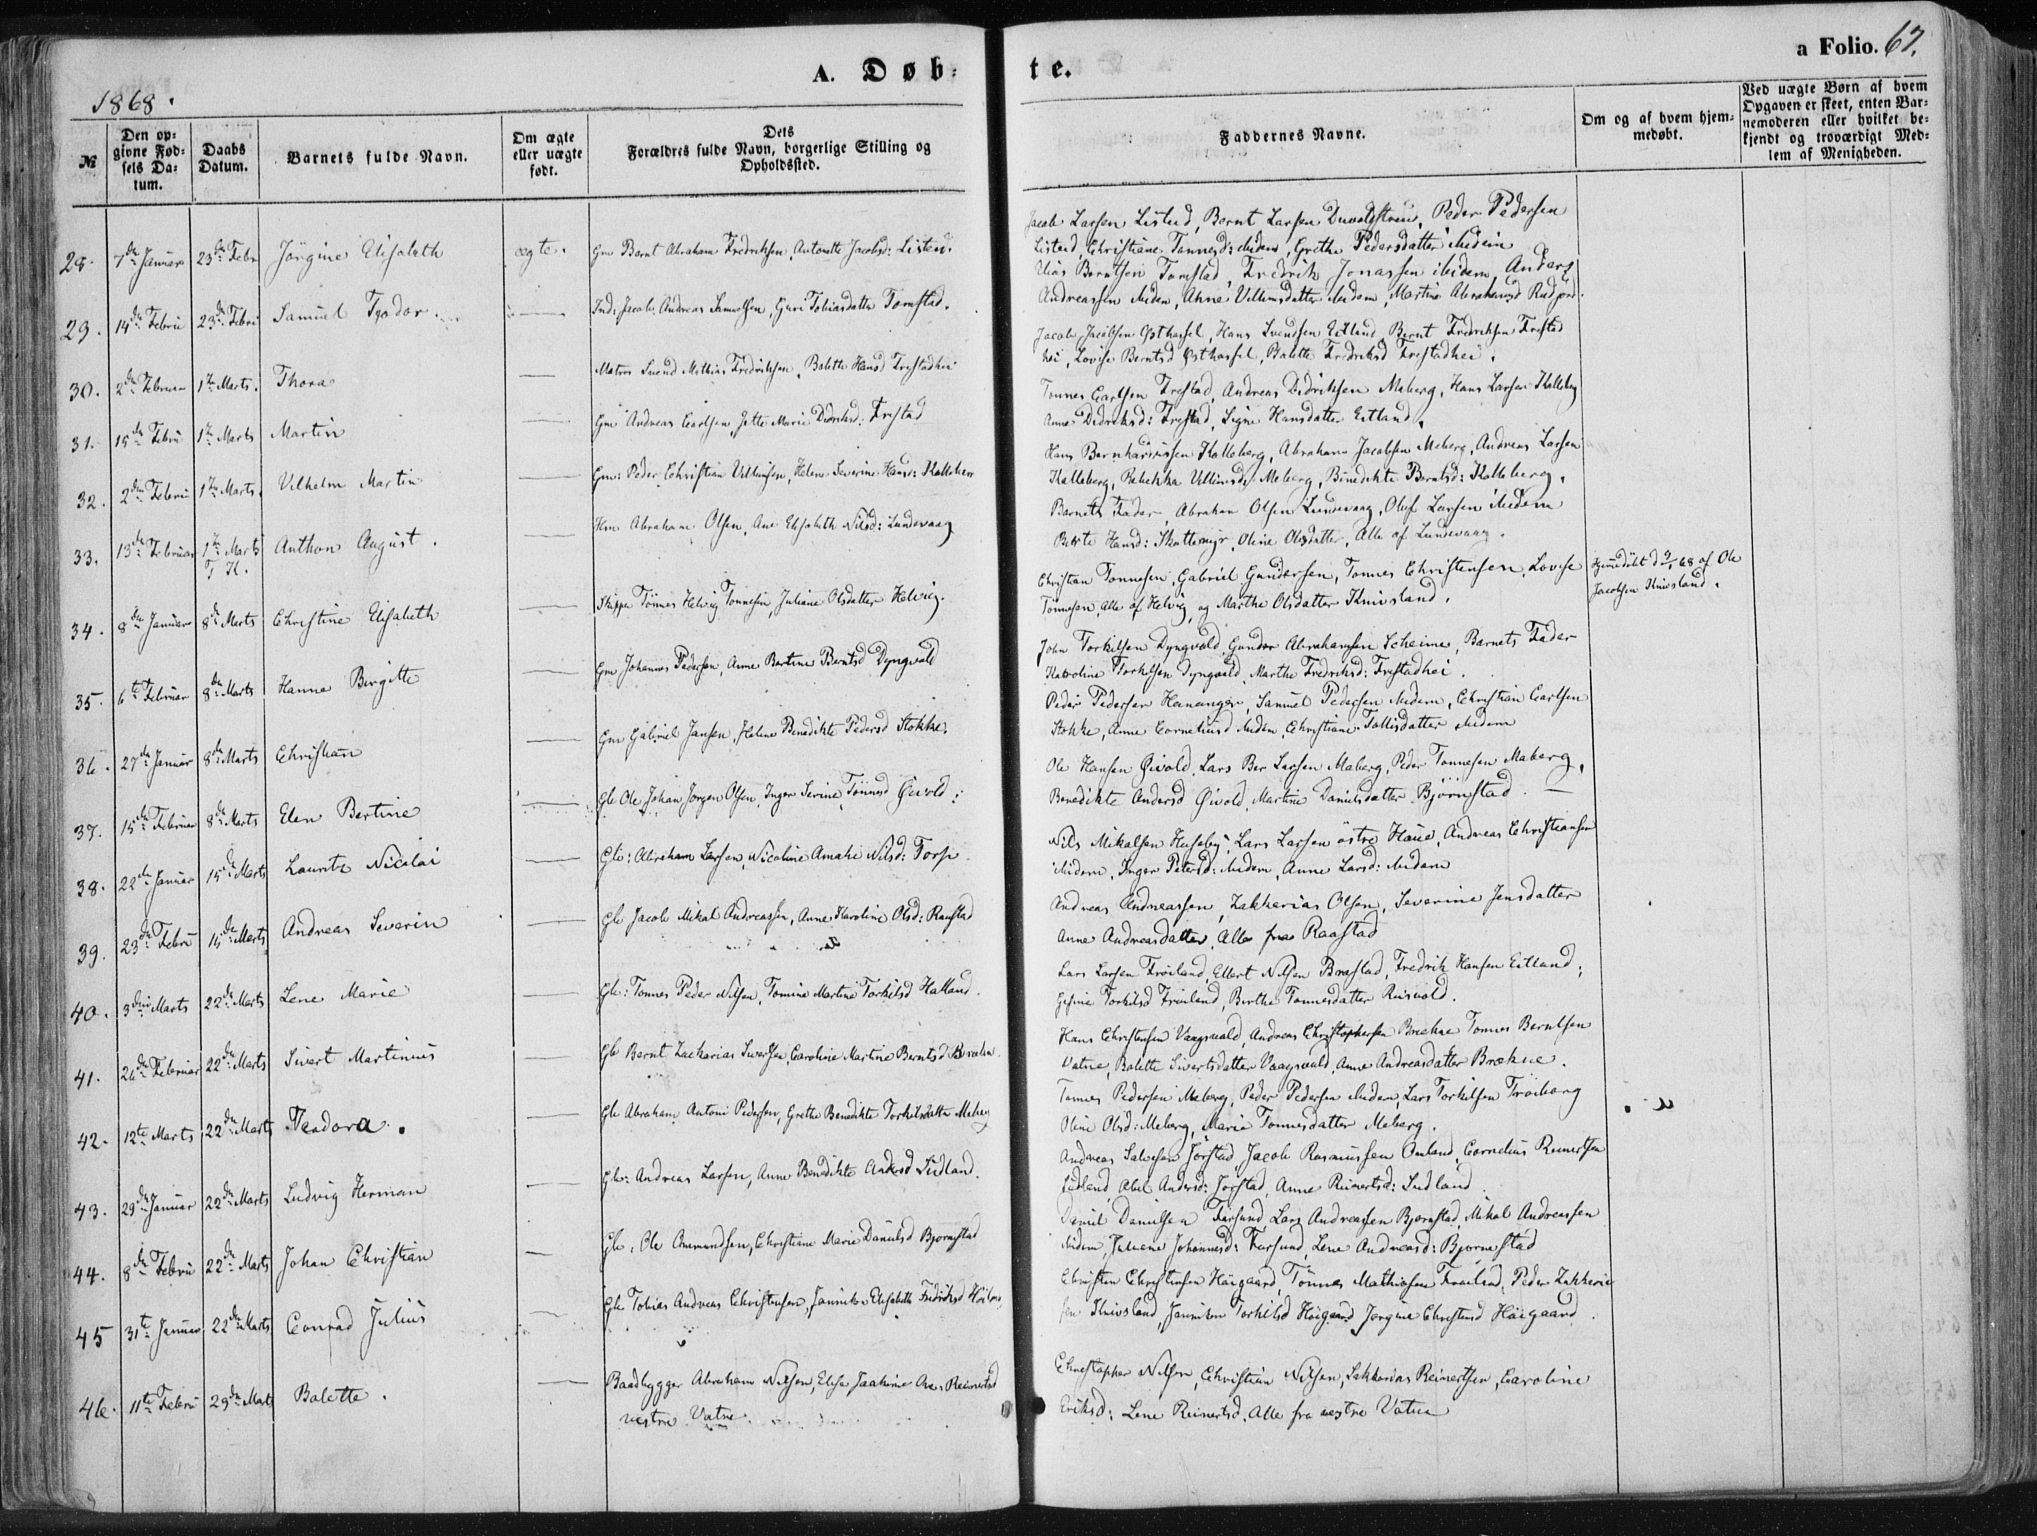 A. Døb-
te.
a Folio. 67.
1868.
№
Den opgivne Fødsels Datum.
Daabs Datum.
Barnets fulde Navn.
Om ægte eller uægte født.
Dets Forældres fulde Navn, borgerlige Stilling og Opholdssted.
Faddernes Navne.
Om og af hvem hjemmedøbt.
Ved uægte Børn af hvem Opgaven er skeet, enten Barnemoderen eller hvilket bekjendt og troværdigt Medlem af Menigheden.
28. 7de Januar 23de Febr Jørgine Elisabeth ægte. Gm Bernt Abraham Fredriksen, Antonette Jacobsd: Listeid.
Jacob Larsen Listeid, Bernt Larsen, Peder Pedersen
Listeid, Christiane Tønnesd: ibidem, Grethe Pedersdatter ibidem
29. 14de Februar 23de Febr Samuel Teodor. Ind: Jacob Andreas Samuelsen, Guri Tobiasdatter Tomstad.
Elias Berntsen Tomstad, Fredrik Jonassen ibidem, Anders
Andreassen ibidem, Anne Villumsdatter ibidem, Martine Abrahamsd
30. 2den Februar 1ste Marts. Thora Matros Svend Mathias Fredriksen, Bolette Hansd Frestadhei
Jacob Jacobsen Østhassel, Hans Svendsen Eitland, Bernt Fredriksen Frestad
hei, Lovise Berntsd Østhassel, Bolette Fredriksd Frestadhei.
31. 15de Febru 1ste Marts Martin Gm Andreas Carlsen, Jette Marie Didriksd: Frestad
Tønnes Carlsen Frestad, Andreas Didriksen Meberg, Hans Larsen Kalleberg
Anne Didriksd: Frestad, Signe Hansdatter Eitland.
32. 2den Febru 1ste Marts. Vilhelm Martin Gm: Peder Christian Villumsen, Helene Severine Hansd: Kalleberg
Hans Bernhardusen Kalleberg, Abraham Jacobsen Meberg, Andreas Larsen
Kalleberg, Rebekka Villumsd: Meberg, Benedikte Berntsd: Kalleberg.
33. 13de Februar 1ste Marts T. H. Anthon August. Abraham Olsen, Ane Elisabeth Nilsd: Lundevaag
Barnets Fader, Abraham Olsen Lundevaag, Oluf Larsen ibidem
Berte Hansd: Skattemyr, Oline Olsdatter, Alle af Lundevaag.
34. 8de Januar 8de Marts Christine Elisabeth Skipper Tønnes Helvig Tønnesen, Juliane Olsdatter Helvig.
Christian Tønnesen, Gabriel Gundersen, Tønnes Christensen, Lovise
Tønnesen, alle af Helvig, og Marthe Olsdatter Knivsland.
Hjemmedøbt d 9/1 68 af Ole
Jacobsen Knivsland.
35. 6te Februar 8de Marts Hanne Birgitte Gm Johannes Pedersen, Anne Bertine Berntsd Dyngvold
John Torkilsen Dyngvold, Gunder Abrahamsen Scheime, Barnets Fader
Karoline Torkilsen Dyngvold, Marthe Fredriksd: Frestadhei.
36. 27de Januar 8de Marts Christian Gm Gabriel Jansen, Helene Benedikte Pedersd Stokke.
Peder Pedersen Hananger, Samuel Pedersen ibidem, Christian Carlsen
Stokke, Anne Corneliusd ibidem, Christiane Tollisdatter ibidem
37. 15de Februar 8de Marts Elen Bertine Gb Ole Johan Jørgen Olsen, Inger Serine Tønnesd Øivold.
Ole Hansen Øivold, Lars Ber Larsen Maberg, Peder Tønnesen Maberg,
Benedikte Andersd Øivold, Martine Danielsdatter Bjørnstad.
38. 22de Januar 15de Marts Lauritz Nicolai Gb: Abraham Larsen, Nicoline Amalie Nilsd: Torp
Nils Mikalsen Huseby, Lars Larsen østre Haue, Andreas Christiansen
ibidem, Inger Petersd: ibidem, Anne Larsd: ibidem
39. 23de Febru 15de Marts Andreas Severin Gb Jacob Mikal Andreassen, Anne Karoline Olsd: Raastad
Andreas Andreassen, Zakkarias Olsen, Severine Jensdatter
Anne Andreasdatter, Alle fra Raastad
40. 3die Marts 22de Marts Lene Marie Gb: Tønnes Peder Nilsen, Tomine Martine Torkilsd Halland.
Lars Larsen Frøiland, Ellert Nilsen Brastad, Fredrik Hansen Eitland;
Gesine Torkilsd Frøiland, Berthe Tønnesdatter
41. 26de Februar 22de Marts Sivert Martinius Gb Bernt Zacharias Sivertsen, Caroline Martine Berntsd Brækne.
Hans Christensen Vaagsvold, Andreas Christophersen Brækne, Tønnes Berntsen
Vatne, Bolette Sivertsdatter Vaagsvold, Anne Andreasdatter Brækne.
42. 12te Marts 22de Marts Teodora. Gb Abraham Antoni Pedersen, Grethe Benedikte Torkilsdatter Meberg
Tønnes Pedersen Meberg, Peder Pedersen ibidem, Lars Torkilsen Trøiborg
Oline Olsd: Meberg, Marie Tønnesdatter Meberg.
43. 29de Januar 22de Marts Ludvig Herman Gb: Andreas Larsen, Anne Benedikte Andersd Sudland.
Andreas Salvesen Jørstad, Jacob Rasmussen Omland, Cornelius Reinertsen
Sudland, Abel Andersd: Jørstad, Anne Reinertsd: Sudland
44. 8de Febru 22de Marts Johan Christian Gb: Ole Ommundsen, Christiane Marie Danielsd Bjørnstad
Daniel Danielsen Farsund, Lars Andreassen Bjørnstad, Mikal Andreassen
ibidem, Juliane Johannesd: Farsund, Lene Andreasd: Bjørnestad
45 31te Januar 22de Marts Conrad Julius Gb Tobias Andreas Christensen, Jannike Elisabeth Fredriksd
Christen Christensen Høigaard, Tønnes Mathiasen, Peder Zakkarie
sen Knivsland, Jannikene Torkilsd Høigaard, Jørgine Christensd Høigaard
46. 11te Febru 29de Marts Bolette. Baadbygger Abraham Nilsen, Elise Joakime Reinertsd
vestre Vatne
Christopher Nilsen, Christian Nilsen, Zakkarias Reinertsen, Caroline
Eriksd: Lene Reinertsd, Alle fra vestre Vatne